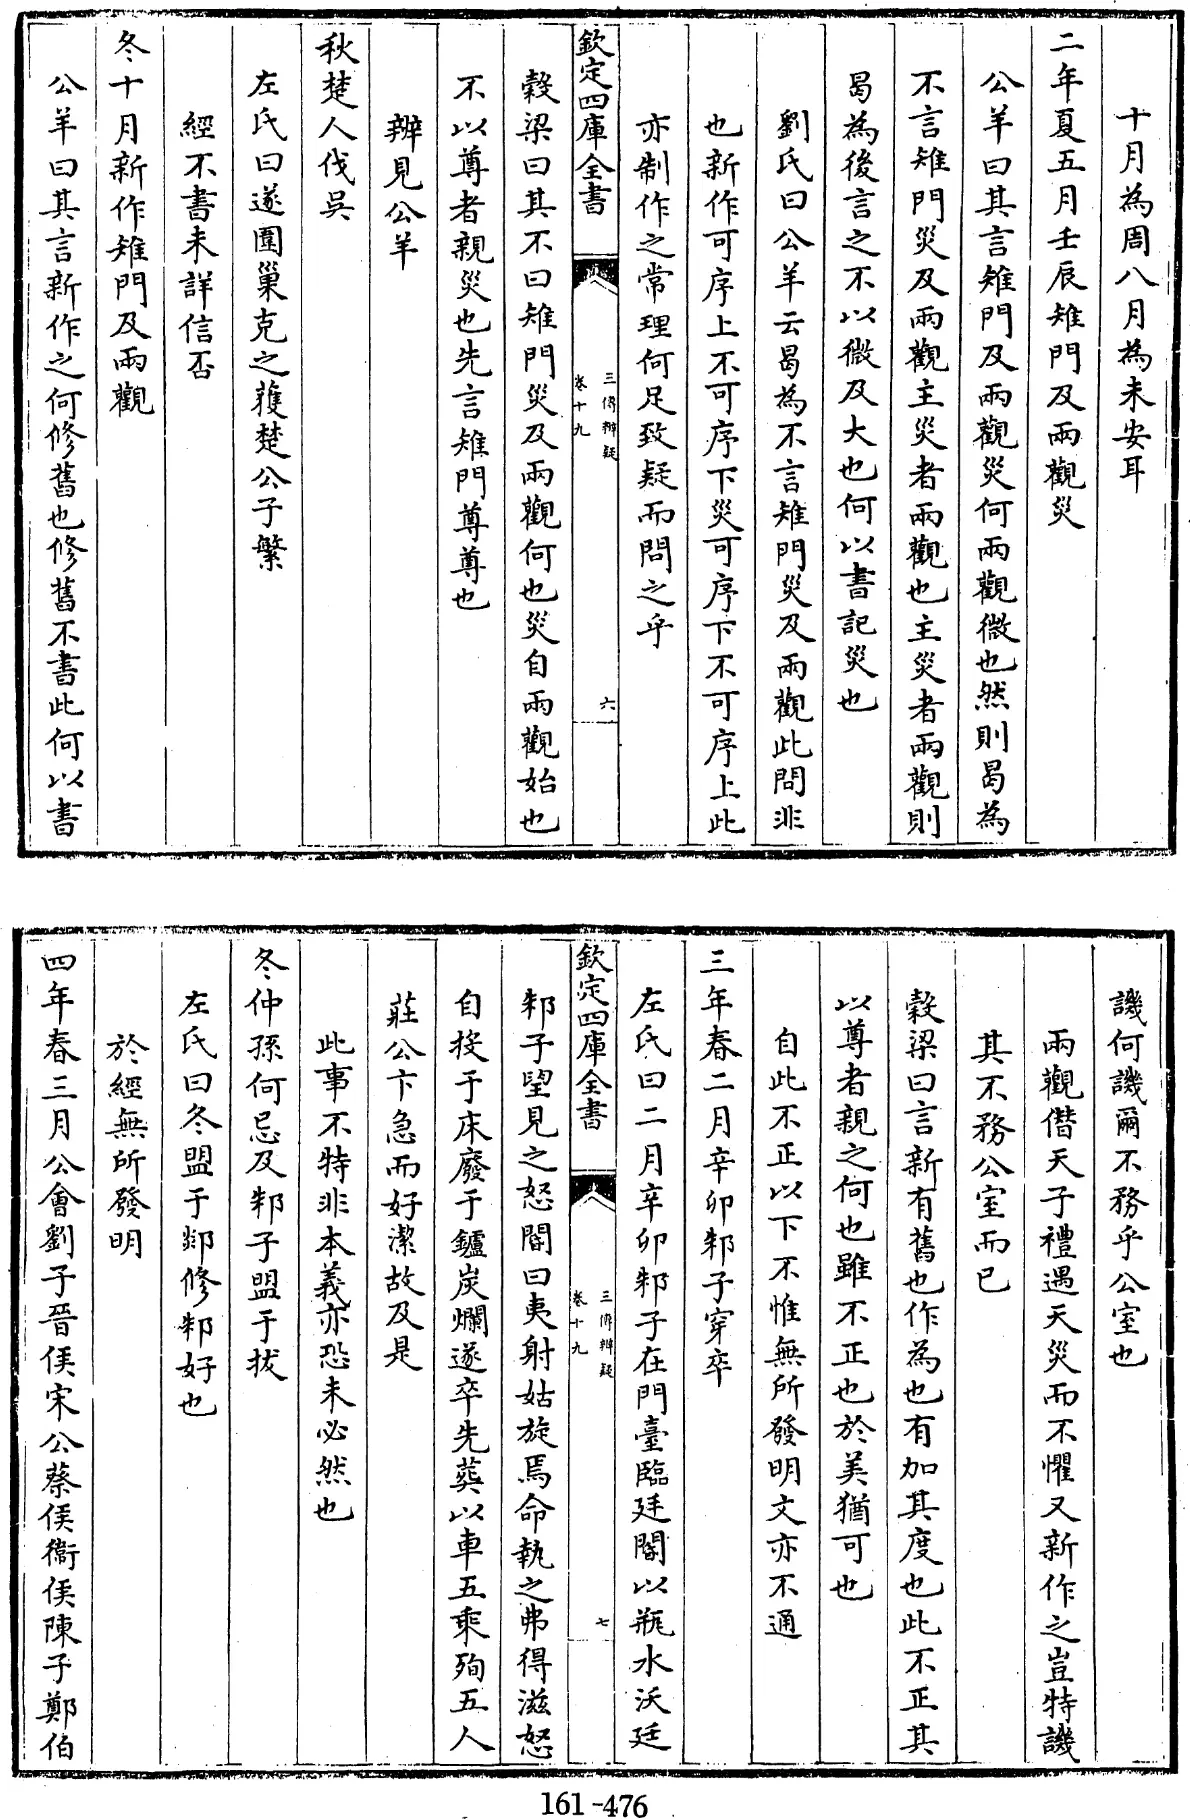 十月為周八月為未安耳
二年夏五月壬辰雉門及兩觀災
公羊曰其言雉門及兩觀災何兩觀微也然則曷為
不言雉門災及兩觀主災者兩觀也主災者兩觀則
曷為後言之不以微及大也何以書記災也
劉氏曰公羊云曷為不言雉門災及兩觀此問非
也新作可序上不可序下災可序下不可序上此
亦制作之常理何足致疑而問之乎
欽定四庫全書
三傳辨疑
卷十九
六
穀梁曰其不曰雉門災及兩觀何也災自兩觀始也
不以尊者親災也先言雉門尊尊也
辨見公羊
秋楚人伐吳
左氏曰遂圍巢克之獲楚公子繁
經不書未詳信否
冬十月新作雉門及兩觀
公羊曰其言新作之何修舊也修舊不書此何以書
譏何譏爾不務乎公室也
兩觀僭天子禮遇天災而不懼又新作之豈特譏
其不務公室而已
穀梁曰言新有舊也作為也有加其度也此不正其
以尊者親之何也雖不正也於美猶可也
自此不正以下不惟無所發明文亦不通
三年春二月辛卯邾子穿卒
左氏曰二月辛卯邾子在門臺臨廷閽以瓶水沃廷
欽定四庫全書
三傳辨疑
卷十九
七
邾子望見之怒閽曰夷射姑旋焉命執之弗得滋怒
自投于床廢于鑪炭爛遂卒先葬以車五乘殉五人
莊公卞急而好潔故及是
此事不特非本義亦恐未必然也
冬仲孫何忌及邾子盟于拔
左氏曰冬盟于郯修邾好也
於經無所發明
四年春三月公會劉子晉侯宋公蔡侯衞侯陳子鄭伯
161-476